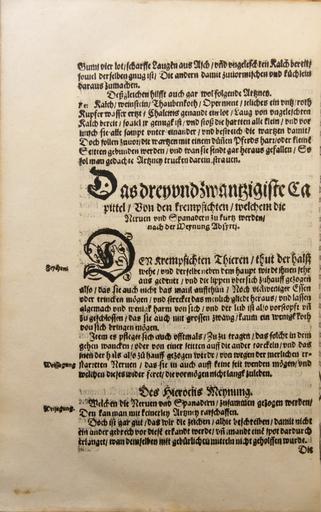 Gumi vier lot/scharffe Laugen aus Asch/ vnd vngeleschten Kalch bereit/
souiel derselben gnug ist/ Die andern damit zuuormischen vnd küchlein
daraus zumachen.
Deßgleichen hilfft auch gar wol folgende Artzney.
Kalch/ weinstein/ Thaubenkoth/ Operment/ jeliches ein vntz/ roth
Kupfer wasser
bereit/ souiel jr genugk ist/ vnd stost die harten alle klein/ vnd vor
misch sie alle sampt vnter einander/ vnd bestreich die wartzen damit/
Doch sollen zuuor die wartzen mit einem dünen Pferds har/ oder kleine
Seiten gebunden werden/ vnd wan sie sindt gar heraus gefallen/ So
sol man gedachte Artzney trucken darein strauen.
Das dreyvndzwantzigiste Ca
pittel/ Von den krempfichten/ welchem die
Neruen vnd Spanadern zu kurtz werden/
nach der Meynung Absyrti.
DEn krempfichten Thieren/ thut der halß
wehe/ vnd derselbe neben dem haupt wirdt jhnen sehr
aus gedent/ vnd die lippen vbersich zuhauff gezogen
also/ das sie auch nicht das maul auffthun/ Noch vielweniger Essen
oder trincken mögen/ vnd strecket das menlich gliedt heraus/ vnd lassen
algemach vnd wenick harm von sich/ vnd der leib ist
zu geschlossen/ das sie auch mit grossen zwang/ kaum ein wenigk koth
von sich bringen mögen.
Item es pfleget sich auch offtmals/ Zu zu tragen/ das solchs in dem
gehen wancken/ oder von einer seiten auff die ander torckeln/ vnd das
jnen der halß also zu hauff gezogen wirdt/ von wegen der merlichen er-
starretten Neruen/ das sie jn auch auff keine seit wenden mögen/ vnd
welchen dieses wider feret/ die vormögen nicht langk zuleben.
Des Hieroclis Meynung.
Welchen die Neruen vnd Spanadern/ zusammen gezogen werden/
Den kan man mit keinerley Artzney rathschaffen.
Doch ist gar gut/ das wir die zeichen/ alhie beschreiben/ damit nicht
ein ander gebrech vor diese erkandt werde/ vnd jmandt eine spot dardurch
erlanget/ wan demselben mit gebürlichen mitteln nicht geholffen wurde.
Die